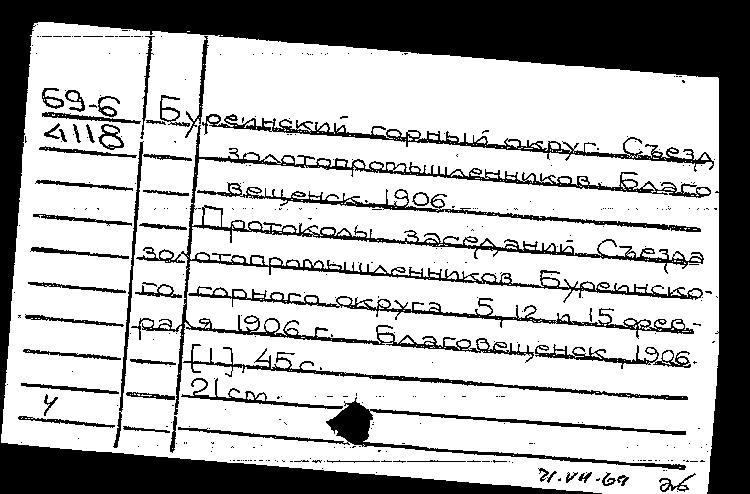 69-6
4118
Буреинский горный округ. Съезд
золотопромышленников. Благо-
вещенск. 1906.
Протоколы заседаний Съезда
золотопромышленников Буреинско-
го горного округа 5, 12 и 15 фев-
раля 1906 г. Благовещенск, 1906.
[1], 45 с.
21 см.
У
21.VII-69 26